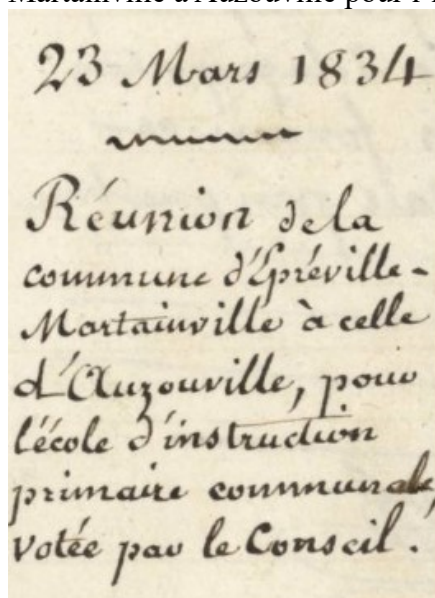 23 Mars 1834
Réunion de la
commune d'Epréville-
Martainville à celle
d'Auzouville, pour
l'école d'instruction
primaire communale,
votée par le Conseil.